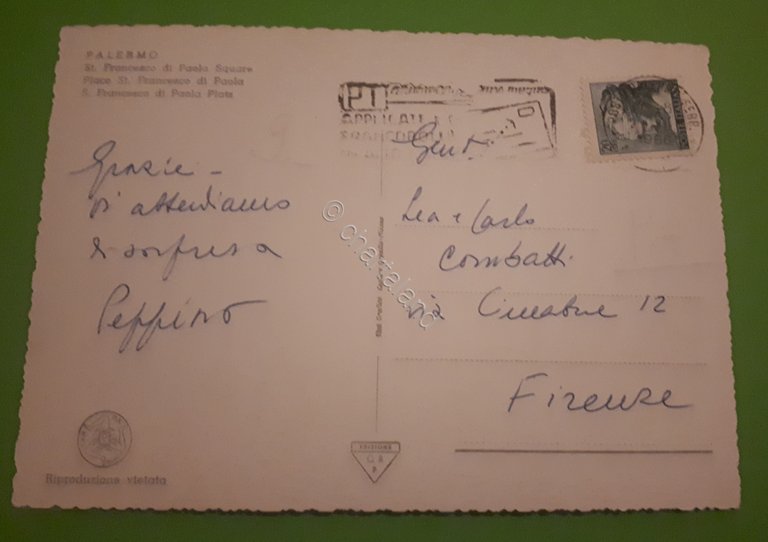 PALERMO
St. Francesco di Paola Square
Place St. Francesco di Paola
S. Francesco di Paola Platz
PT
APPLICATE
FRANCOBOLLI
Grazie -
Vi attendiamo
di sorpresa
Peppino
Gent.
Lea e Carlo
Combatti
via Cimabue 12
Firenze
© chartaland
EDIZIONE
Riproduzione vietata